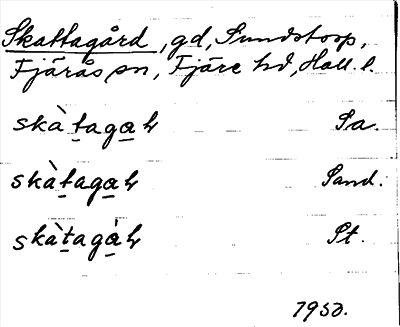 Skattagård, gd, Sundstorp,
Fjärås sn, Fjäre hd, Hall. l.
skàtagah Sa.
skàtagah Sand.
skàtagàh St.